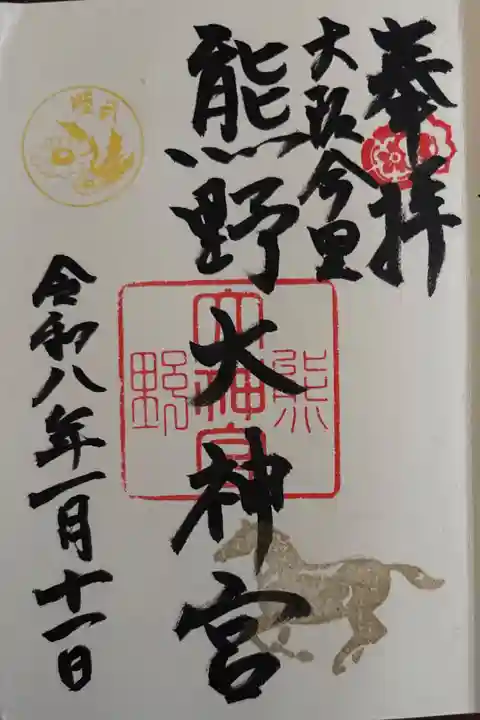 奉拝
大阪今里
熊野大神宮
熊野大神宮
令和八年一月十一日